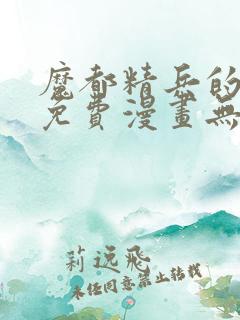 魔都精兵的
免費漫畫無
莉远飛
未经同意禁止转载